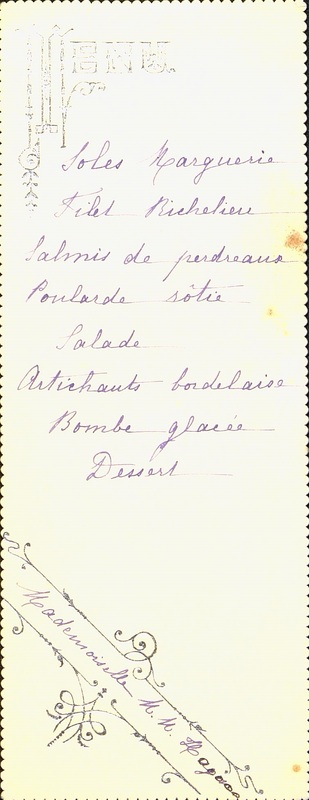 MENU
Soles Marguerie
Filet Richelieu
Salmis de perdreaux
Poularde rôtie
Salade
Artichauts bordelaise
Bombe glacée
Dessert
Mademoiselle M. M.